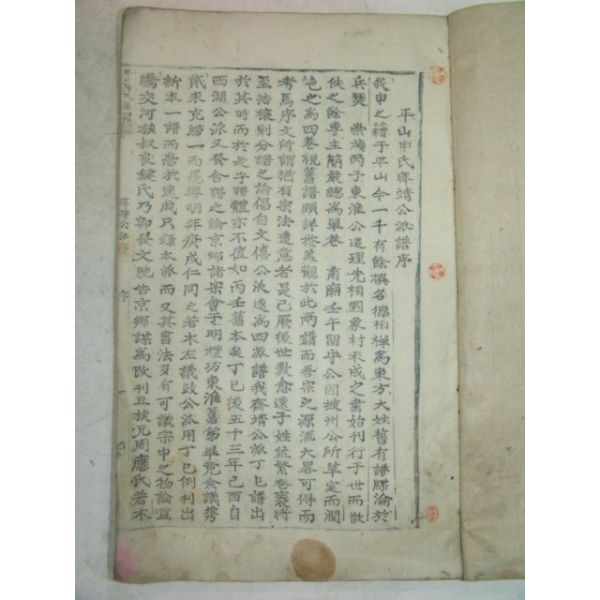 平山申氏齊靖公派譜序
我申之籍于平山今一千有餘㯢名德相望爲東方大姓舊有譜牒淪於
兵燹 崇禎丙子東淮公追理先相國象村未成之書始刊行于世而散
佚之餘專主簡嚴總爲單卷 肅廟壬午留守公因坡州公所草定而潤
色之爲四卷視舊譜頗詳 蓋觀於此兩譜而吾宗之源流大畧可得而
考焉序文所謂猶有宗法遺意者是已厥後世數愈遠子姓㽓繁 將
至浩穰則分譜之論倡自文僖公派遂爲四派譜我齊靖公派丁巳譜出
於其時而於老子譜體亦不値如丙壬舊本矣丁巳後五十三年己酉自
西湖公派又發合譜之論京鄉諸宗會于明禮坊東淮舊第畢竟僉議携
貳未克歸一而 明年庚戌仁同之若木左議政公派用丁巳例刋出
新本一譜而悉於速成只錄本派而又其書法多有可議宗中之物論
騰交河族叔良 氏乃 發文馳告京鄉謀爲改刊且族兄周應氏若木